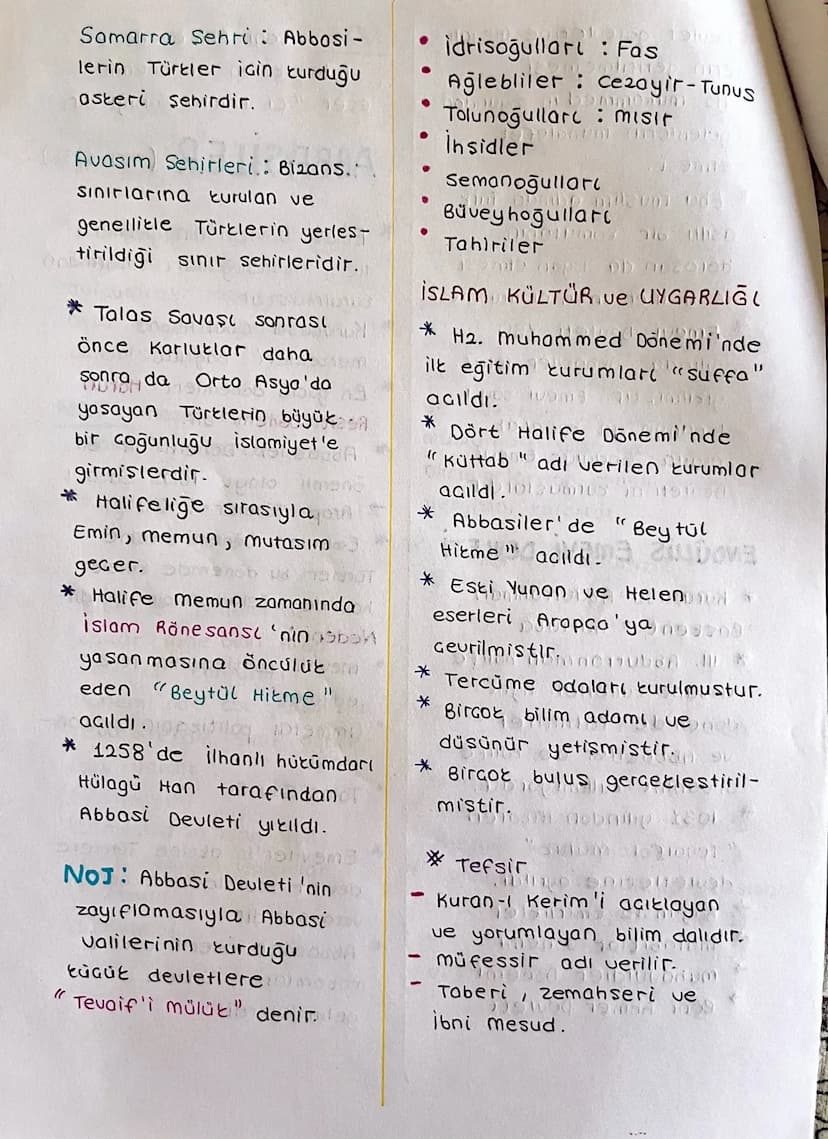 Samarra Şehri : Abbasi-
lerin Türkler için kurduğu
askeri şehirdir.
Avasım Şehirleri : Bizans
sınırlarına kurulan ve
genellikle Türklerin yerleş-
tirildiği sınır şehirleridir.
* Talas Savaşı sonrası
önce Karluklar daha
sonra da Orta Asya'da
yaşayan Türklerin büyük
bir çoğunluğu İslamiyet'e
girmişlerdir.
* Halifeliğe sırasıyla
Emin, memun, mutasım
geçer.
* Halife memun zamanında
İslam Rönesansı 'nin
yaşanmasına öncülük
eden "Beytül Hikme"
açıldı.
* 1258'de İlhanlı hükümdarı
Hülagü Han tarafından
Abbasi Devleti yıkıldı.
NOT: Abbasi Devleti'nin
zayıflamasıyla Abbasi
valilerinin kurduğu
küçük devletlere
"Tevaif'i mülük" denir.
• İdrisoğulları : Fas
• Ağlebliler : Cezayir-Tunus
• Tolunoğulları : mısır
• İhşidler
• Semanoğulları
• Büveyhoğulları
• Tahiriler
İSLAM KÜLTÜR ve UYGARLIĞI
* Hz. muhammed Dönemi'nde
ilk eğitim kurumları "suffa"
açıldı.
* Dört Halife Dönemi'nde
"Küttab" adı verilen kurumlar
açıldı.
* Abbasiler'de "Beytül
Hikme" açıldı.
* Eski Yunan ve Helen
eserleri Arapça'ya
çevrilmiştir.
* Tercüme odaları kurulmuştur.
* Birçok bilim adamı ve
düşünür yetişmiştir.
* Birçok buluş gerçekleştiril-
miştir.
* Tefsir
- Kuran-ı Kerim'i açıklayan
ve yorumlayan bilim dalıdır.
- müfessir adı verilir.
- Taberi, Zemahşeri ve
İbni mesud.